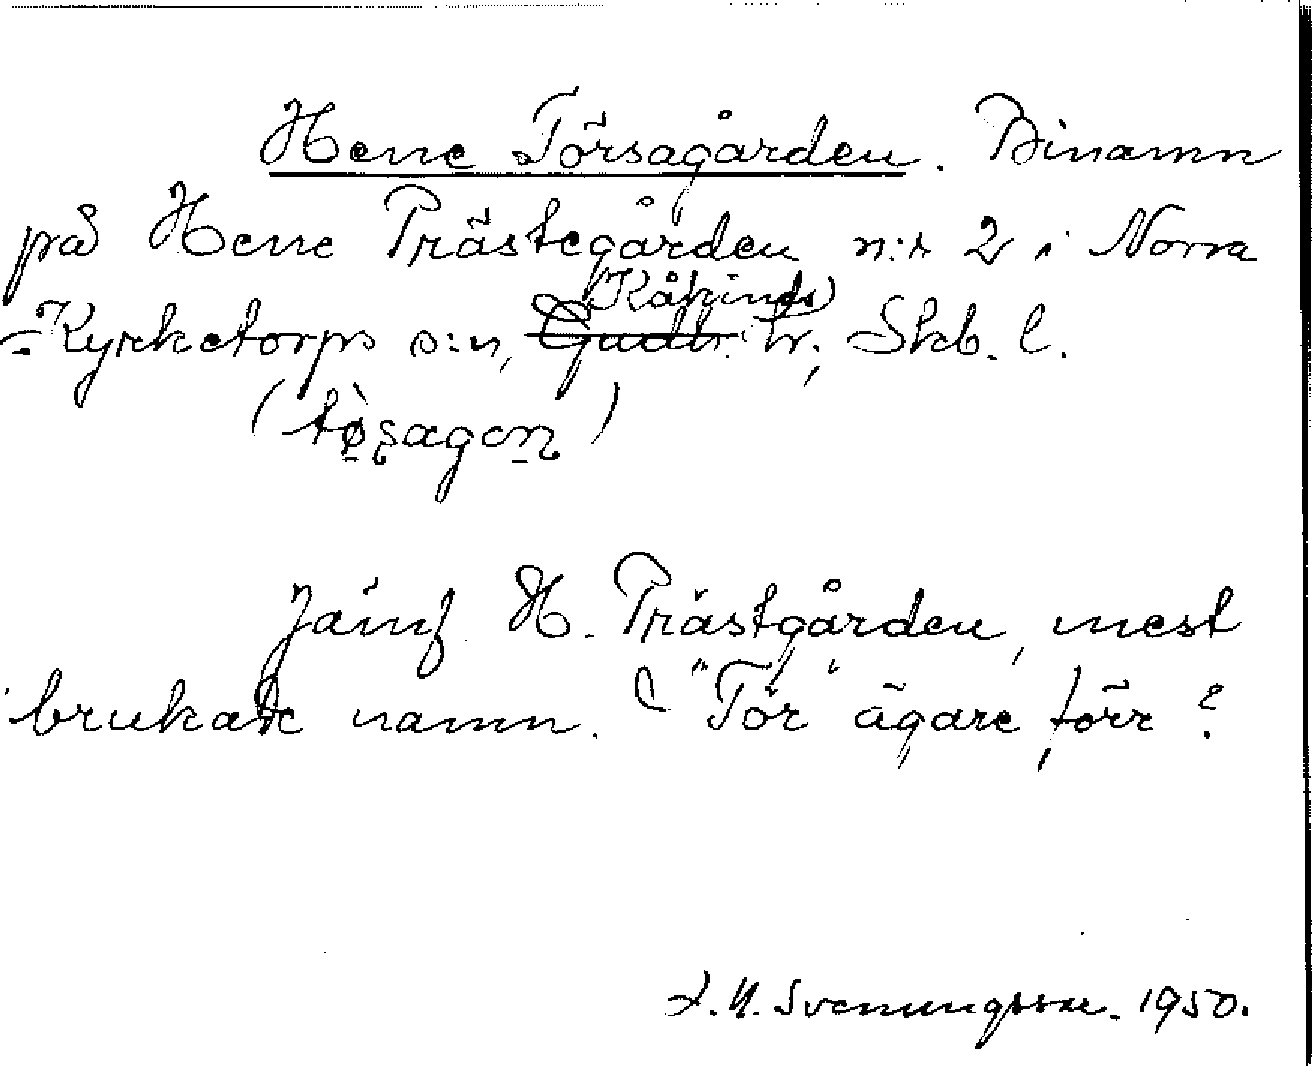 Hene Törsagården. Binamn
på Hene Prästegården n:r 2 i Norra
Kyrketorps s:n, Gudh. (Kåkinds) hr, Skb. l.
(tø̀ṣagan)
Jämf. H. Prästgården, mest
brukade namn. "Tör" ägare förr?
Svenungsson. 1950.